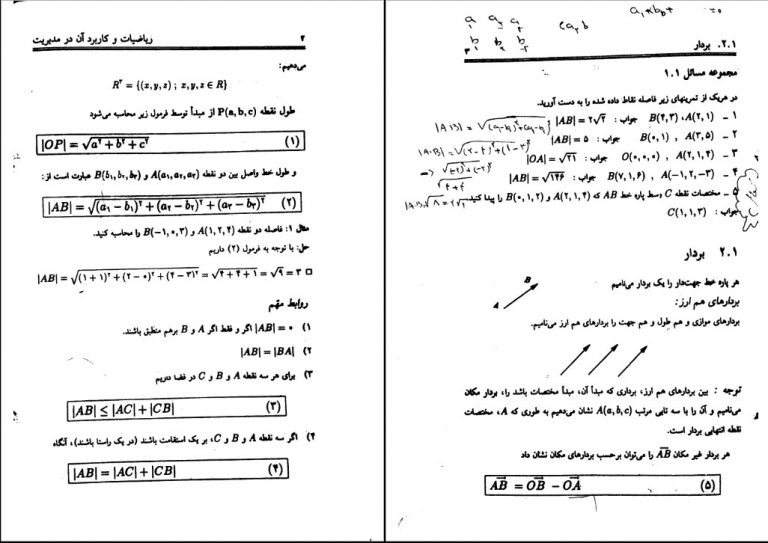 ۲ ریاضیات و کاربرد آن در مدیریت
می‌دهیم:
R³ = {(x, y, z) ; x, y, z ∈ R}
طول نقطه P(a, b, c) از مبدأ توسط فرمول زیر محاسبه می‌شود
|OP| = √(a² + b² + c²) (۱)
و طول خط واصل بین دو نقطه A(a₁, a₂, a₃) و B(b₁, b₂, b₃) عبارت است از:
|AB| = √((a₁ − b₁)² + (a₂ − b₂)² + (a₃ − b₃)²) (۲)
مثال ۱: فاصله دو نقطه A(۱, ۲, ۴) و B(−۱, ۰, ۳) را محاسبه کنید.
حل: با توجه به فرمول (۲) داریم
|AB| = √((۱ + ۱)² + (۲ − ۰)² + (۴ − ۳)²) = √(۴ + ۴ + ۱) = √۹ = ۳ □
روابط مهم
۱) |AB| = ۰ اگر و فقط اگر A و B برهم منطبق باشند.
۲) |AB| = |BA|
۳) برای هر سه نقطه A و B و C در فضا داریم
|AB| ≤ |AC| + |CB| (۳)
۴) اگر سه نقطه A و B و C، بر یک استقامت باشند (در یک راستا باشند)، آنگاه
|AB| = |AC| + |CB| (۴)
۲.۱. بردار ۳
مجموعه مسائل ۱.۱
در هریک از تمرینهای زیر فاصله نقاط داده شده را به دست آورید.
۱ – A(۲, ۱) ، B(۴, ۳) جواب: |AB| = ۲√۲
۲ – A(۳, ۵) ، B(۰, ۱) جواب: |AB| = ۵
۳ – A(۲, ۱, ۴) ، O(۰, ۰, ۰) جواب: |OA| = √۲۱
۴ – A(−۱, ۲, −۳) ، B(۷, ۱, ۶) جواب: |AB| = √۱۴۶
۵ – مختصات نقطه C وسط پاره خط AB که A(۲, ۱, ۴) و B(۰, ۱, ۲) را پیدا کنید.
جواب: C(۱, ۱, ۳)
۲.۱ بردار
هر پاره خط جهت‌دار را یک بردار می‌نامیم
B
A
بردارهای هم ارز:
بردارهای موازی و هم طول و هم جهت را بردارهای هم ارز می‌نامیم.
توجه : بین بردارهای هم ارز، برداری که مبدأ آن، مبدأ مختصات باشد را، بردار مکان
می‌نامیم و آن را با سه تایی مرتب A(a, b, c) نشان می‌دهیم به طوری که A، مختصات
نقطه انتهایی بردار است.
هر بردار غیر مکان AB⃗ را می‌توان برحسب بردارهای مکان نشان داد
AB⃗ = OB⃗ − OA⃗ (۵)